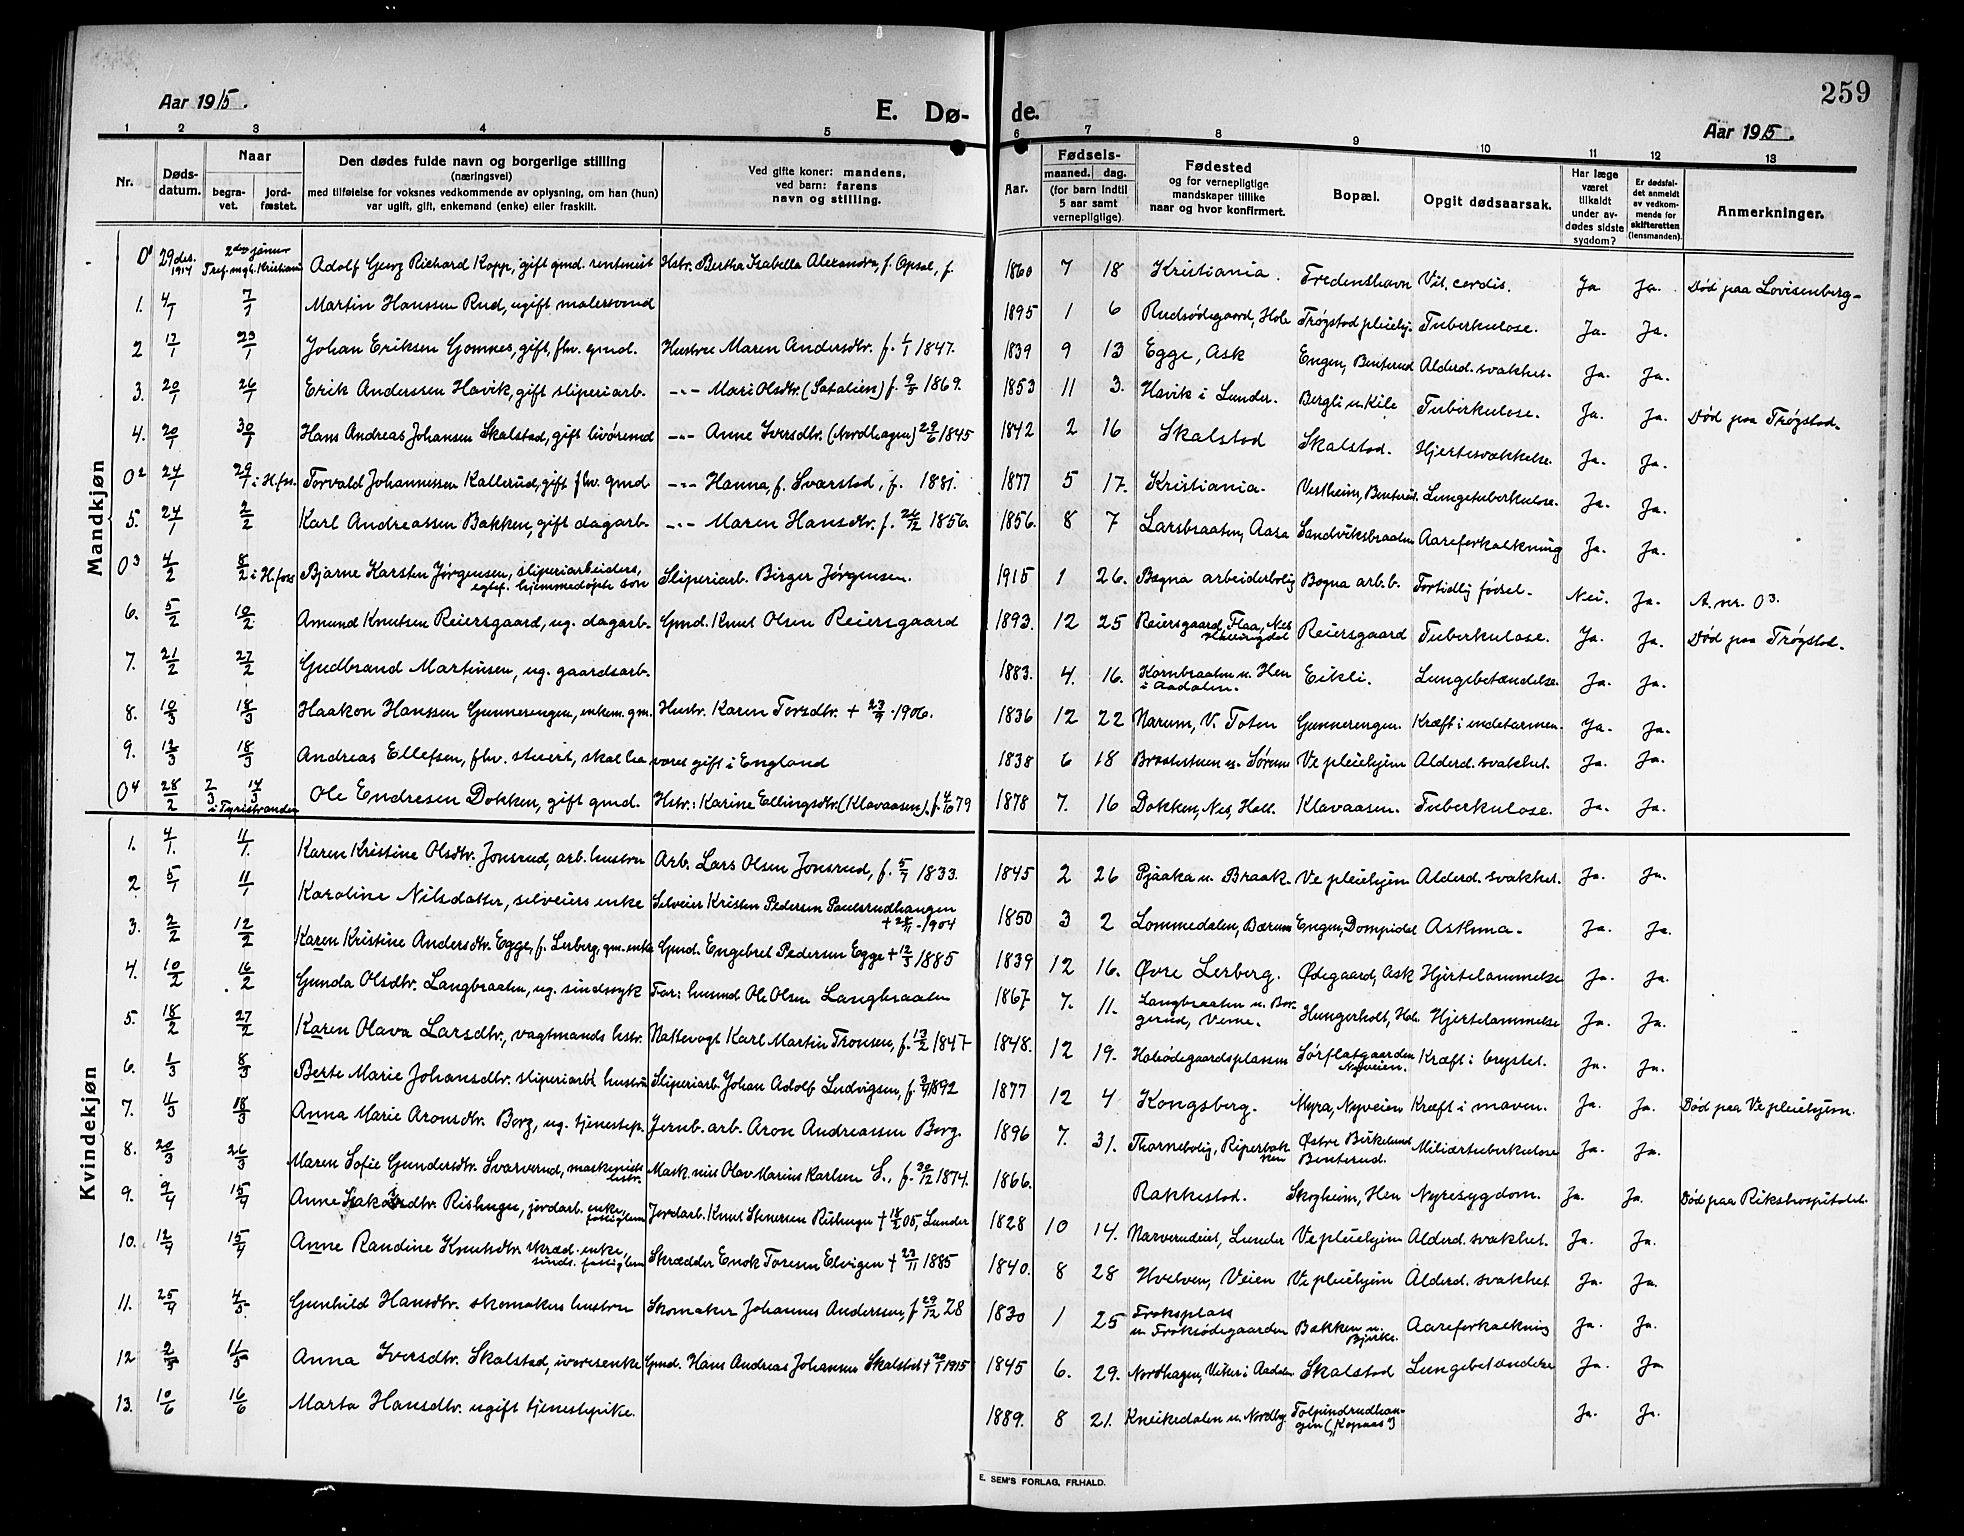 Aar 1915.
E. Dø-
de.
259
Aar 1915.
1 2 3 4 5 6 7 8 9 10 11 12 13
Nr.
Døds-
datum.
Naar
begra-
vet.
jord-
fæstet.
Den dødes fulde navn og borgerlige stilling
(næringsvei)
med tilføielse for voksnes vedkommende av oplysning, om han (hun)
var ugift, gift, enkemand (enke) eller fraskilt.
Ved gifte koner: mandens,
ved barn: farens
navn og stilling.
Aar.
Fødsels-
maaned. dag.
(for barn indtil
5 aar samt
vernepligtige)
Fødested
og for vernepligtige
mandskaper tillike
naar og hvor konfirmert.
Bopæl.
Opgit dødsaarsak.
Har læge
været
tilkaldt
under av-
dødes sidste
sygdom?
Er dødsfal-
det anmeldt
av vedkom-
mende for
skifteretten
(lensmanden).
Anmerkninger.
Mandkjøn
0¹ 29 des. 1914 2den januar Tref. mgh. Kristiania Adolf Georg Richard Kopp, gift gmd. rentenist Hstr. Bertha Isabella Alexandra, f. Opsal, f. 1860 7 18 Kristiania. Fredenshavn Vit. cordis. Ja Ja. Død paa Lovisenberg-
1. 4/1 7/1 Martin Hanssen Rud, ugift malersvend 1895 1 6 Rudsødegaard, Hole Trøgstad pleiehj. Tuberkulose. Ja. Ja.
2 17/1 23/1 Johan Eriksen Gomnes, gift, fhv. gmd. Hustru Maren Andersdtr. f. 6/1 1847. 1839 9 13 Egge, Ask Engen, Benterud Alderd. svakhet. Ja. Ja.
3. 20/1 26/1 Erik Anderssen Havik, gift sliperiarb. -"- Mari Olsdtr. (Satalien) f. 9/5 1869. 1853 11 3. Havik i Lunder. Bergli u. Kile Tuberkulose. Ja. Ja. Død paa Trøgstad.
4. 20/1 30/1 Hans Andreas Johansen Skalstad, gift livøremd -"- Anne Iversdtr. (Nordhagen) 29/6 1845 1842 2 16 Skalstad Skalstad. Hjertesvækkelse. Ja. Ja.
0² 24/1 29/1 i H.foss. Torvald Johannessen Kallerud, gift fhv. gmd -"- Hanna, f. Svarstad, f. 1881. 1877 5 17. Kristiania. Vestheim, Benterud. Lungetuberkulose. Ja. Ja.
5. 24/1 2/2 Karl Andreassen Bakken, gift dagarb. -"- Maren Hansdtr. f. 26/12 1856. 1856. 8 7 Larsbraaten, Aasa Sandviksbraaten Aareforkalkning Ja. Ja.
0³ 4/2 8/2 i H.foss Bjarne Karsten Jørgensen, sliperiarbeiders, egtef. hjemmedøpte søn Sliperiarb. Birger Jørgensen. 1915 1 26. Bægna arbeiderbolig Bægna arb.b. Fortidlig førsel. Nei. Ja. A. nr. 0³.
6. 5/2 10/2 Amund Knutsen Reiersgaard, ug. dagarb. Gmd. Knut Olsen Reiersgaard 1893. 12 25 Reiersgaard, Flaa, Nes Hallingdal Reiersgaard Tuberkulose. Ja. Ja. Død paa Trøgstad.
7. 21/2 27/2 Gudbrand Martinsen, ug. gaardsarb. 1883. 4. 16. Kornbraaten u. Hen i Aadalen. Eikli. Lungebetændelse. Ja. Ja.
8. 10/3 18/3 Haakon Hanssen Gunnerengen, enkem. gm. Hustr. Karen Torsdtr. + 23/9 1906. 1836 12 22 Narum, V. Toten Gunnerengen. Kræft i endetarmen. Ja. Ja.
9. 12/3 18/3 Andreas Ellefsen, fhv. stuert, skal ha været gift i England 1838 6 18 Braatestuen u. Sørum Ve pleiehjem Alderd. svakhet. Ja. Ja.
0⁴ 28/2 2/3 14/3 i Tyristranden Ole Endresen Dokken, gift gmd. Hstr: Karine Ellingsdtr. (Klavaasen). f. 4/10 79 1878 7. 16 Dokken, Nes, Hall. Klavaasen. Tuberkulose. Ja. Ja.
Kvindekjøn
1. 4/1. 11/1. Karen Kristine Olsdtr. Jonsrud, arb. hustru Arb. Lars Olsen Jonsrud, f. 5/7 1833. 1845 2 26 Pjaaka u. Braak. Ve pleiehjem Alderd. svakhet. Ja. Ja.
2 5/1 11/1 Karoline Nilsdatter, selveiers enke Selveier Kristen Pedersen Paulsrudhaugen + 28/11 1904 1850 3 2 Lommedalen, Bærum Engen, Dompidal Asthma. Ja. Ja.
3. 2/2 12/2 Karen Kristine Andersdtr. Egge, f. Lerberg, gm. enke Gmd. Engebret Pedersen Egge + 12/3 1885 1839 12 16. Øvre Lerberg. Ødegaard, Ask Hjertelammelse Ja. Ja.
4. 10/2 16/2 Gunda Olsdtr. Langbraaten, ug. sindssyk Far: husmd Ole Olsen Langbraaten 1867 7. 11. Langbraaten u. Borgerud, Veme. Hungerholt, Hole Hjertelammelse Ja. Ja.
5. 18/2 27/2 Karen Olava Larsdtr., vagtmands hstr. Nattevagt Karl Martin Tronsen, f. 13/2 1847 1848. 12 19. Holeødegaardsplassen Sørflatgaarden Nyveien. Kræft i brystet. Ja. Ja.
6. 1/3 8/3 Berte Marie Johansdtr. sliperiarb. hustru Sliperiarb. Johan Adolf Ludvigsen, f. 3/9 1892 1877 12 4 Kongsberg. Myra, Nyveien Kræft i maven. Ja. Ja. Død paa Ve pleiehjem.
7. 11/3 18/3 Anna Marie Aronsdtr. Borg, ug. tjenestep. Jernb. arb. Aron Andreassen Borg. 1896 7. 31. Tharnebolig, Ripperbakken Østre Birkelund Benterud. Miliærtuberkulose Ja. Ja.
8. 20/3 26/3 Maren Sofie Gundersdtr. Svarverud, maskinists hustr. Maskinist Olav Marius Karlsen S., f. 30/12 1874. 1866. Rakkestad. Skogheim, Hen Nyresygdom. Ja. Ja. Død paa Rikshospitalet.
9. 9/4 15/4 Anne Isaksdtr. Rishaugen, jordarb. enke, fattiglem Jordarb. Knut Stenersen Rishaugen + 18/2 05, Lunder 1828 10 14. Narverudeiet, Lunder Ve pleiehjem Alderd. svakhet. Ja. Ja.
10. 12/4 15/4 Anne Randine Knutsdtr. skræd. enke, sinds. fattiglem Skrædder Enok Toresen Elvigen + 23/11 1885 1840. 8 28 Hvelven, Veien Ve pleiehjem Alderd. svakhet Ja. Ja.
11. 25/4 4/5. Gunhild Hansdtr. skomakers hustru Skomaker Johannes Anderssen, f 29/12 28 1830 1 25 Froksplass u. Froksødegaarden Bakken u. Bjerke. Aareforkalkning Ja. Ja.
12 2/5 11/5 Anna Iversdtr. Skalstad, livøresenke Gmd. Hans Andreas Johansen Skalstad + 20/1 1915 1845 6. 29. Nordhagen, Viker i Aadalen Skalstad Lungebetændelse Ja. Ja
13. 10/6 16/6 Marta Hansdtr. ugift tjenestepike. 1889. 8 21. Kneikedalen u. Nordby Tolpinrudhaugen ("Kopaas") Ja. Ja.
E. SEM'S FORLAG, FR.HALD.